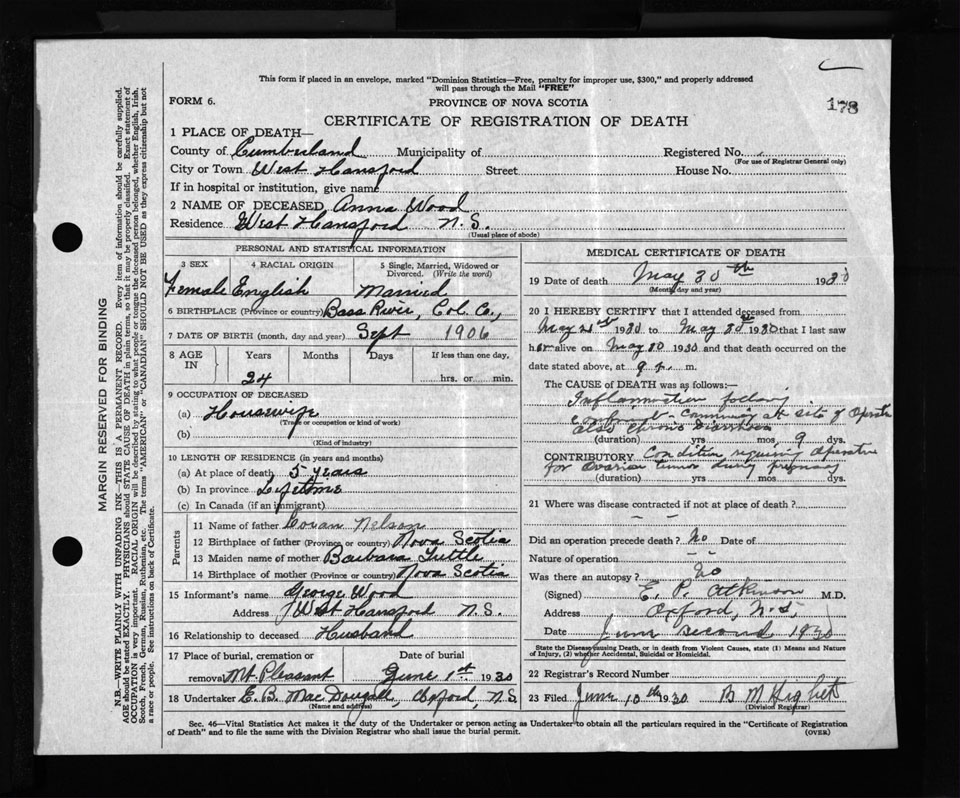 This form if placed in an envelope, marked "Dominion Statistics—Free, penalty for improper use, $300," and properly addressed
will pass through the Mail "FREE"
FORM 6.
PROVINCE OF NOVA SCOTIA
178
CERTIFICATE OF REGISTRATION OF DEATH
1 PLACE OF DEATH—
County of Cumberland Municipality of Registered No.
(For use of Registrar General only)
City or Town West Hansford Street House No.
If in hospital or institution, give name
2 NAME OF DECEASED Anna Wood
Residence West Hansford N.S.
(Usual place of abode)
PERSONAL AND STATISTICAL INFORMATION
3 SEX 4 RACIAL ORIGIN 5 Single, Married, Widowed or
Divorced. (Write the word)
Female English Married
6 BIRTHPLACE (Province or country) Bass River, Col. Co.,
7 DATE OF BIRTH (month, day and year) Sept 1906
8 AGE IN Years Months Days If less than one day,
24 hrs. or min.
9 OCCUPATION OF DECEASED
(a) Housewife
(Trade or occupation or kind of work)
(b)
(Kind of industry)
10 LENGTH OF RESIDENCE (in years and months)
(a) At place of death 5 years
(b) In province Lifetime
(c) In Canada (if an immigrant)
Parents
11 Name of father Nelson
12 Birthplace of father (Province or country) Nova Scotia
13 Maiden name of mother Barbara Tuttle
14 Birthplace of mother (Province or country) Nova Scotia
15 Informant's name George Wood
Address West Hansford N.S.
16 Relationship to deceased Husband
17 Place of burial, cremation or Date of burial
removal Mt. Pleasant June 1st 1930
18 Undertaker E. B. MacDougall, Oxford, N.S
(Name and address)
MEDICAL CERTIFICATE OF DEATH
19 Date of death May 30th 1930
(Month, day and year)
20 I HEREBY CERTIFY that I attended deceased from
May 21st 1930 to May 30th 1930 that I last saw
her alive on May 30 1930 and that death occurred on the
date stated above, at 9 p. m.
The CAUSE OF DEATH was as follows:
Inflammation following
at site of operation
also chronic Diarrhoea
(duration) yrs mos. 9 dys.
CONTRIBUTORY Condition requiring operation
for Ovarian tumor during pregnancy
(duration) yrs. mos. dys.
21 Where was disease contracted if not at place of death?
Did an operation precede death? No Date of
Nature of operation
Was there an autopsy? No
(Signed) E. P. Atkinson M.D.
Address Oxford, N.S.
Date June second 1930
State the Disease causing Death, or in death from Violent Causes, state (1) Means and Nature
of Injury, (2) whether Accidental, Suicidal or Homicidal.
22 Registrar's Record Number
23 Filed June 10th 1930
(Division Registrar)
Sec. 46—Vital Statistics Act makes it the duty of the Undertaker or person acting as Undertaker to obtain all the particulars required in the "Certificate of Registration
of Death" and to file the same with the Division Registrar who shall issue the burial permit.
(OVER)
MARGIN RESERVED FOR BINDING
N.B.—WRITE PLAINLY WITH UNFADING INK—THIS IS A PERMANENT RECORD. Every item of information should be carefully supplied.
AGE should be stated EXACTLY. PHYSICIANS should STATE CAUSE OF DEATH in plain terms, so that it may be properly classified. Exact statement of
OCCUPATION is very important. RACIAL ORIGIN will be described by stating to what people or tongue the deceased person belonged, whether English, Irish,
Scotch, French, German, Russian, Ruthenian, etc. The terms "AMERICAN" or "CANADIAN" SHOULD NOT BE USED as they express citizenship but not
a race or people. See instructions on back of Certificate.